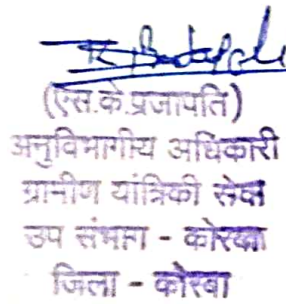 (एस.के.प्रजापति)
अनुविभागीय अधिकारी
ग्रामीण यांत्रिकी सेवा
उप संभाग - कोरबा
जिला - कोरबा